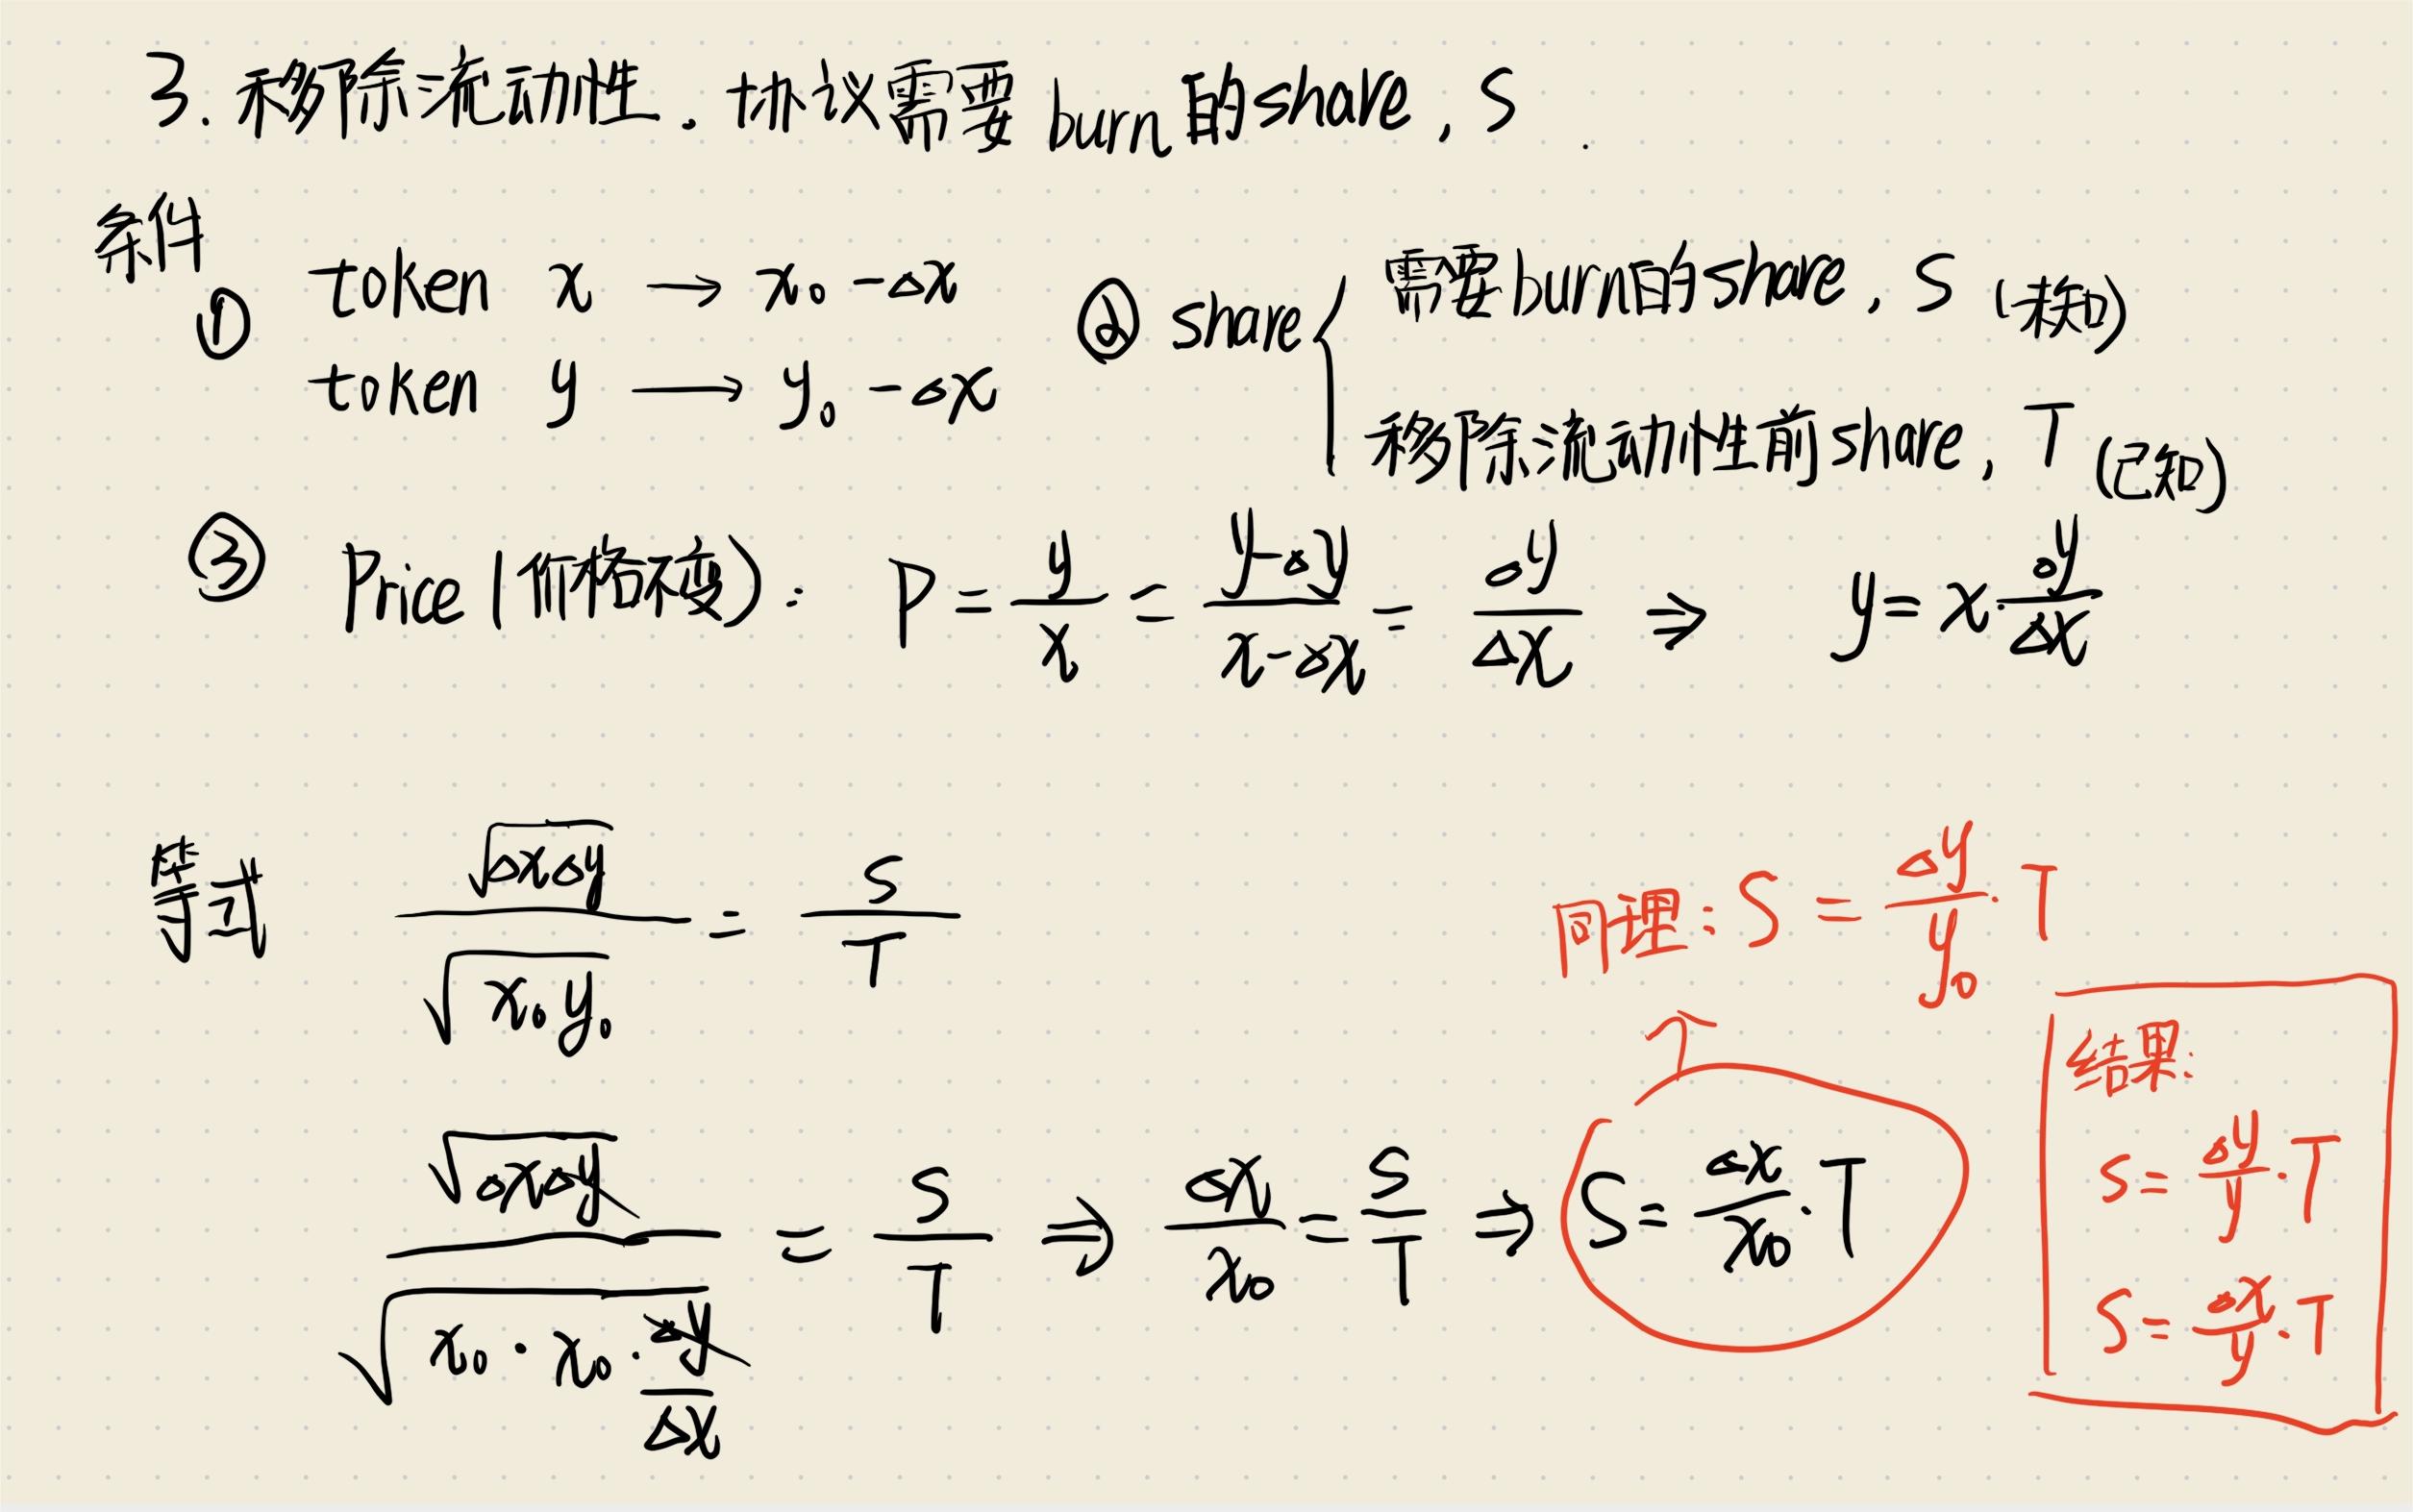 3. 移除流动性. 协议需要 burn 的 share, S .
条件
① token x → x₀ - Δx
token y → y₀ - Δx
② share { 需要burn的share, S (未知)
移除流动性前share, T (已知)
③ Price (价格不变): P = y/x = (y-Δy)/(x-Δx) = Δy/Δx ⇒ y = x·Δy/Δx
等式 √(ΔxΔy) / √(x₀y₀) = S/T
同理: S = Δy/y₀ · T
√(ΔxΔy) / √(x₀·x₀·Δy/Δx) = S/T ⇒ Δx/x₀ = S/T ⇒ S = Δx/x₀ · T
结果:
S = Δy/y · T
S = Δx/y · T